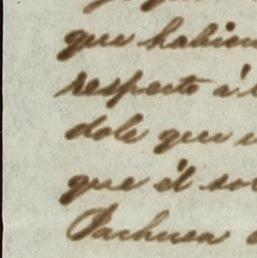 que habien
respecto á l
dole que
que él sol
Pachuca